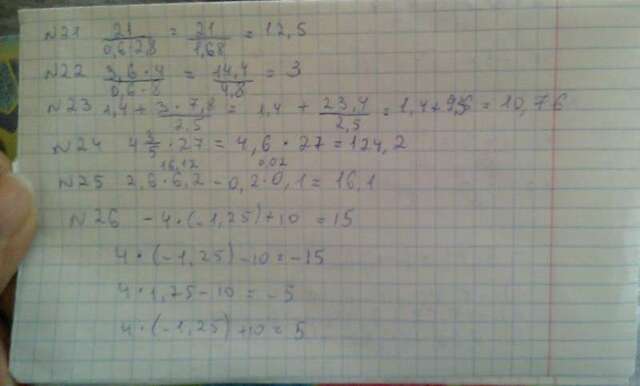 N21 21/0,6·2,8 = 21/1,68 = 12,5
N22 3,6·4/0,6·8 = 14,4/4,8 = 3
N23 1,4 + 3·7,8/2,5 = 1,4 + 23,4/2,5 = 1,4 + 9,36 = 10,76
N24 4 3/5 · 27 = 4,6 · 27 = 124,2
16,12 0,02
N25 2,6·6,2 - 0,2·0,1 = 16,1
N26 -4·(-1,25)+10 = 15
4·(-1,25)-10 = -15
4·1,25-10 = -5
4·(-1,25)+10 = 5